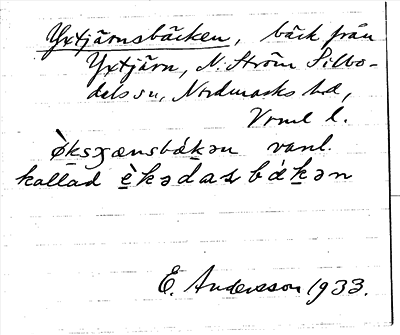 Yxtjärnsbäcken, bäck från
Yxtjärn, N. Ström Silbo-
dals sn, Nordmarks hd,
Vrml l.
vanl.
kallad
E. Andersson 1933.